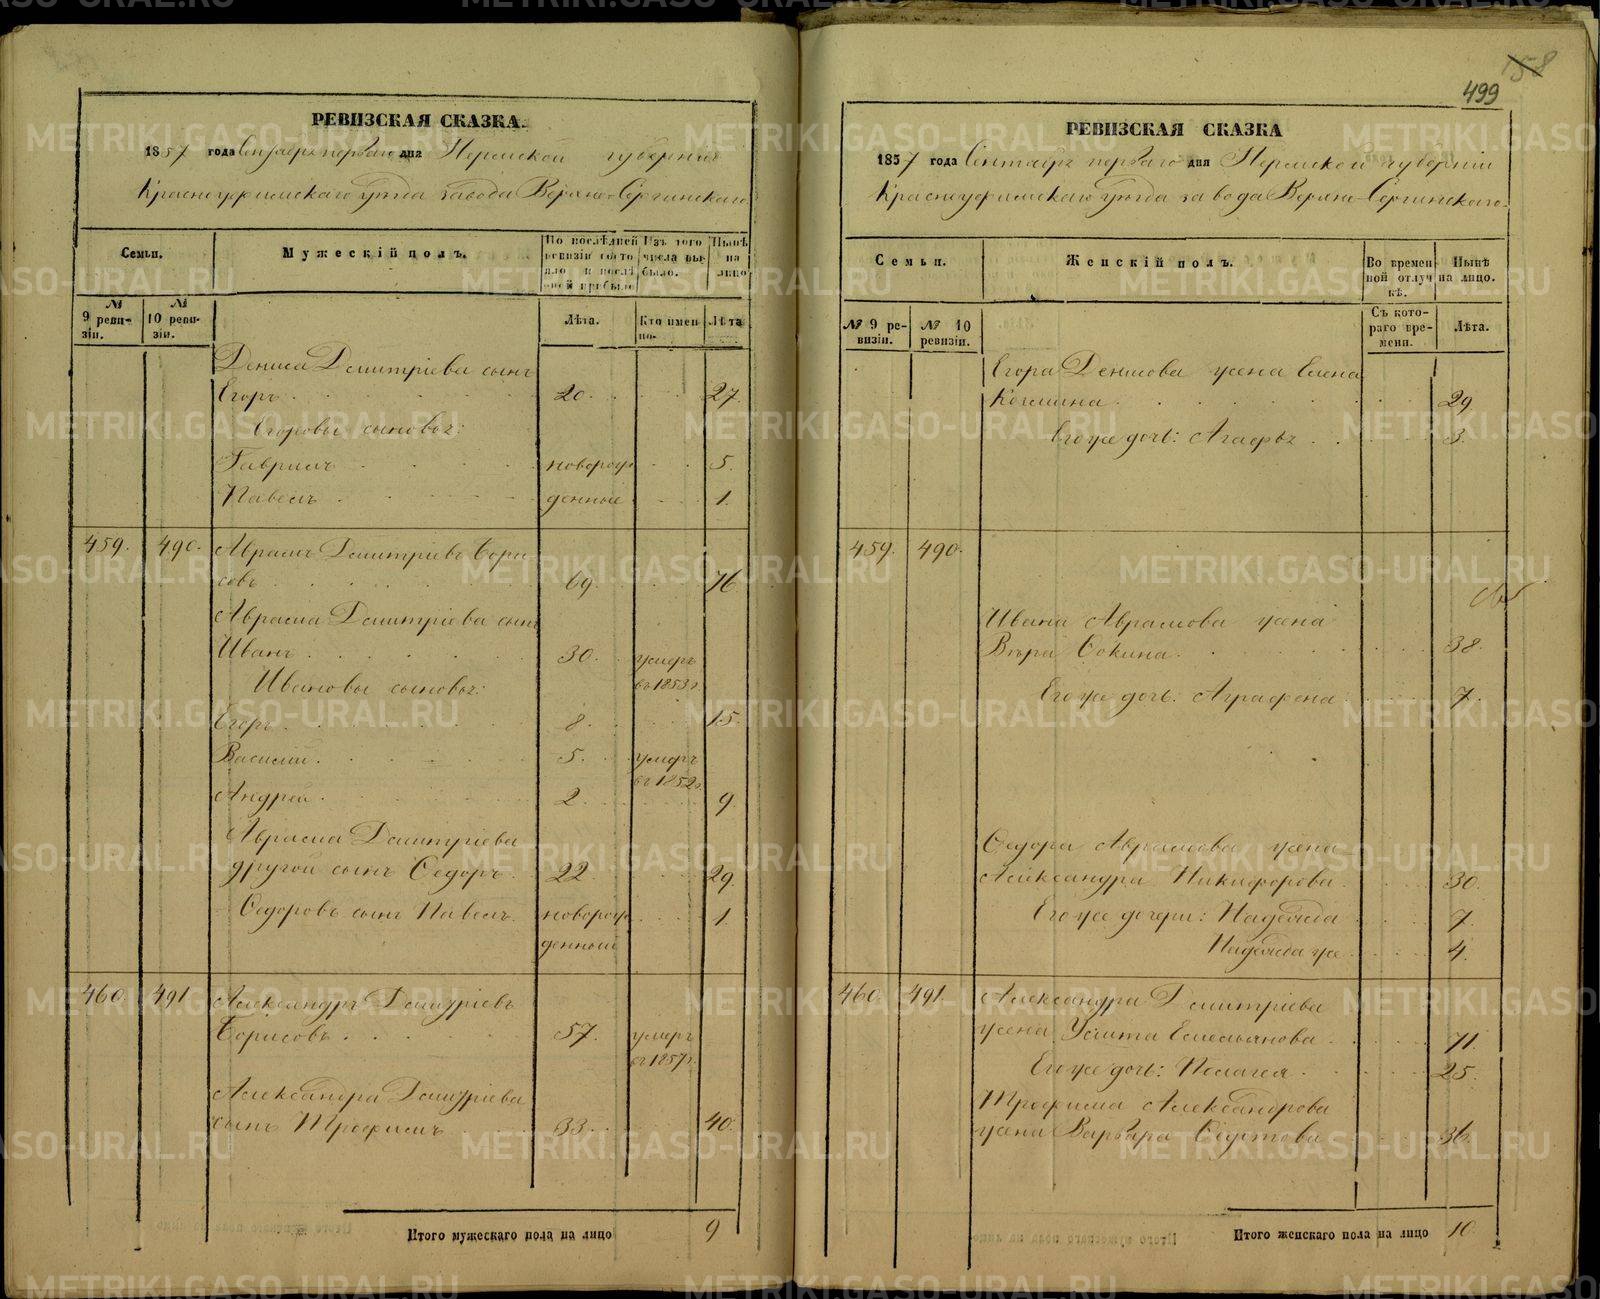 РЕВИЗСКАЯ СКАЗКА.
1857 года Сентября перваго дня Пермской губерніи
Красноуфимскаго уѣзда завода Верхне-Сергинскаго
Семьи.
Мужескій полъ.
По послѣдней ревизіи состояло и послѣ оной прибыло
Изъ того числа выбыло.
Нынѣ на лицо
№ 9 ревизіи.
№ 10 ревизіи.
Лѣта.
Кто именно.
Лѣта
Дениса Дмитріева сынъ
Егоръ 20. 27.
Егоровы сыновья:
Гаврилъ новорож 5.
Павелъ денные 1.
459. 490. Аврамъ Дмитріевъ Бори
совъ 69. 76
Аврама Дмитріева сынъ
Иванъ 30. умеръ
въ 1853г.
Ивановы сыновья:
Егоръ 8. 15.
Василій 5. умеръ
въ 1852г.
Андрей 2. 9.
Аврама Дмитріева
другой сынъ Ѳедоръ 22. 29.
Ѳедоровъ сынъ Павелъ новорож 1.
денный
460. 491 Александръ Дмитріевъ
Борисовъ 57. умеръ
въ 1857г.
Александра Дмитріева
сынъ Трофимъ 33. 40.
Итого мужескаго пола на лицо 9
158
499
РЕВИЗСКАЯ СКАЗКА
1857 года Сентября перваго дня Пермской губерніи
Красноуфимскаго уѣзда завода Верхне-Сергинскаго.
Семьи.
Женскій полъ.
Во временной отлучкѣ.
Нынѣ на лицо.
№ 9 ревизіи.
№ 10 ревизіи.
Съ котораго времени.
Лѣта.
Егора Денисова жена Елена
Козмина 29
Его же дочь: Агафья 3.
459. 490.
Ивана Аврамова жена
Вѣра Ѳокина 38.
Его же дочь: Аграфена 7.
Ѳедора Аврамова жена
Александра Никифорова 30.
Его же дочери: Надежда 7.
Надежда же 4.
460. 491. Александра Дмитріева
жена Улита Емельянова 71.
Его же дочь: Пелагея 25.
Трофима Александрова
жена Варвара 36.
Итого женскаго пола на лицо 10.
METRIKI.GASO-URAL.RU